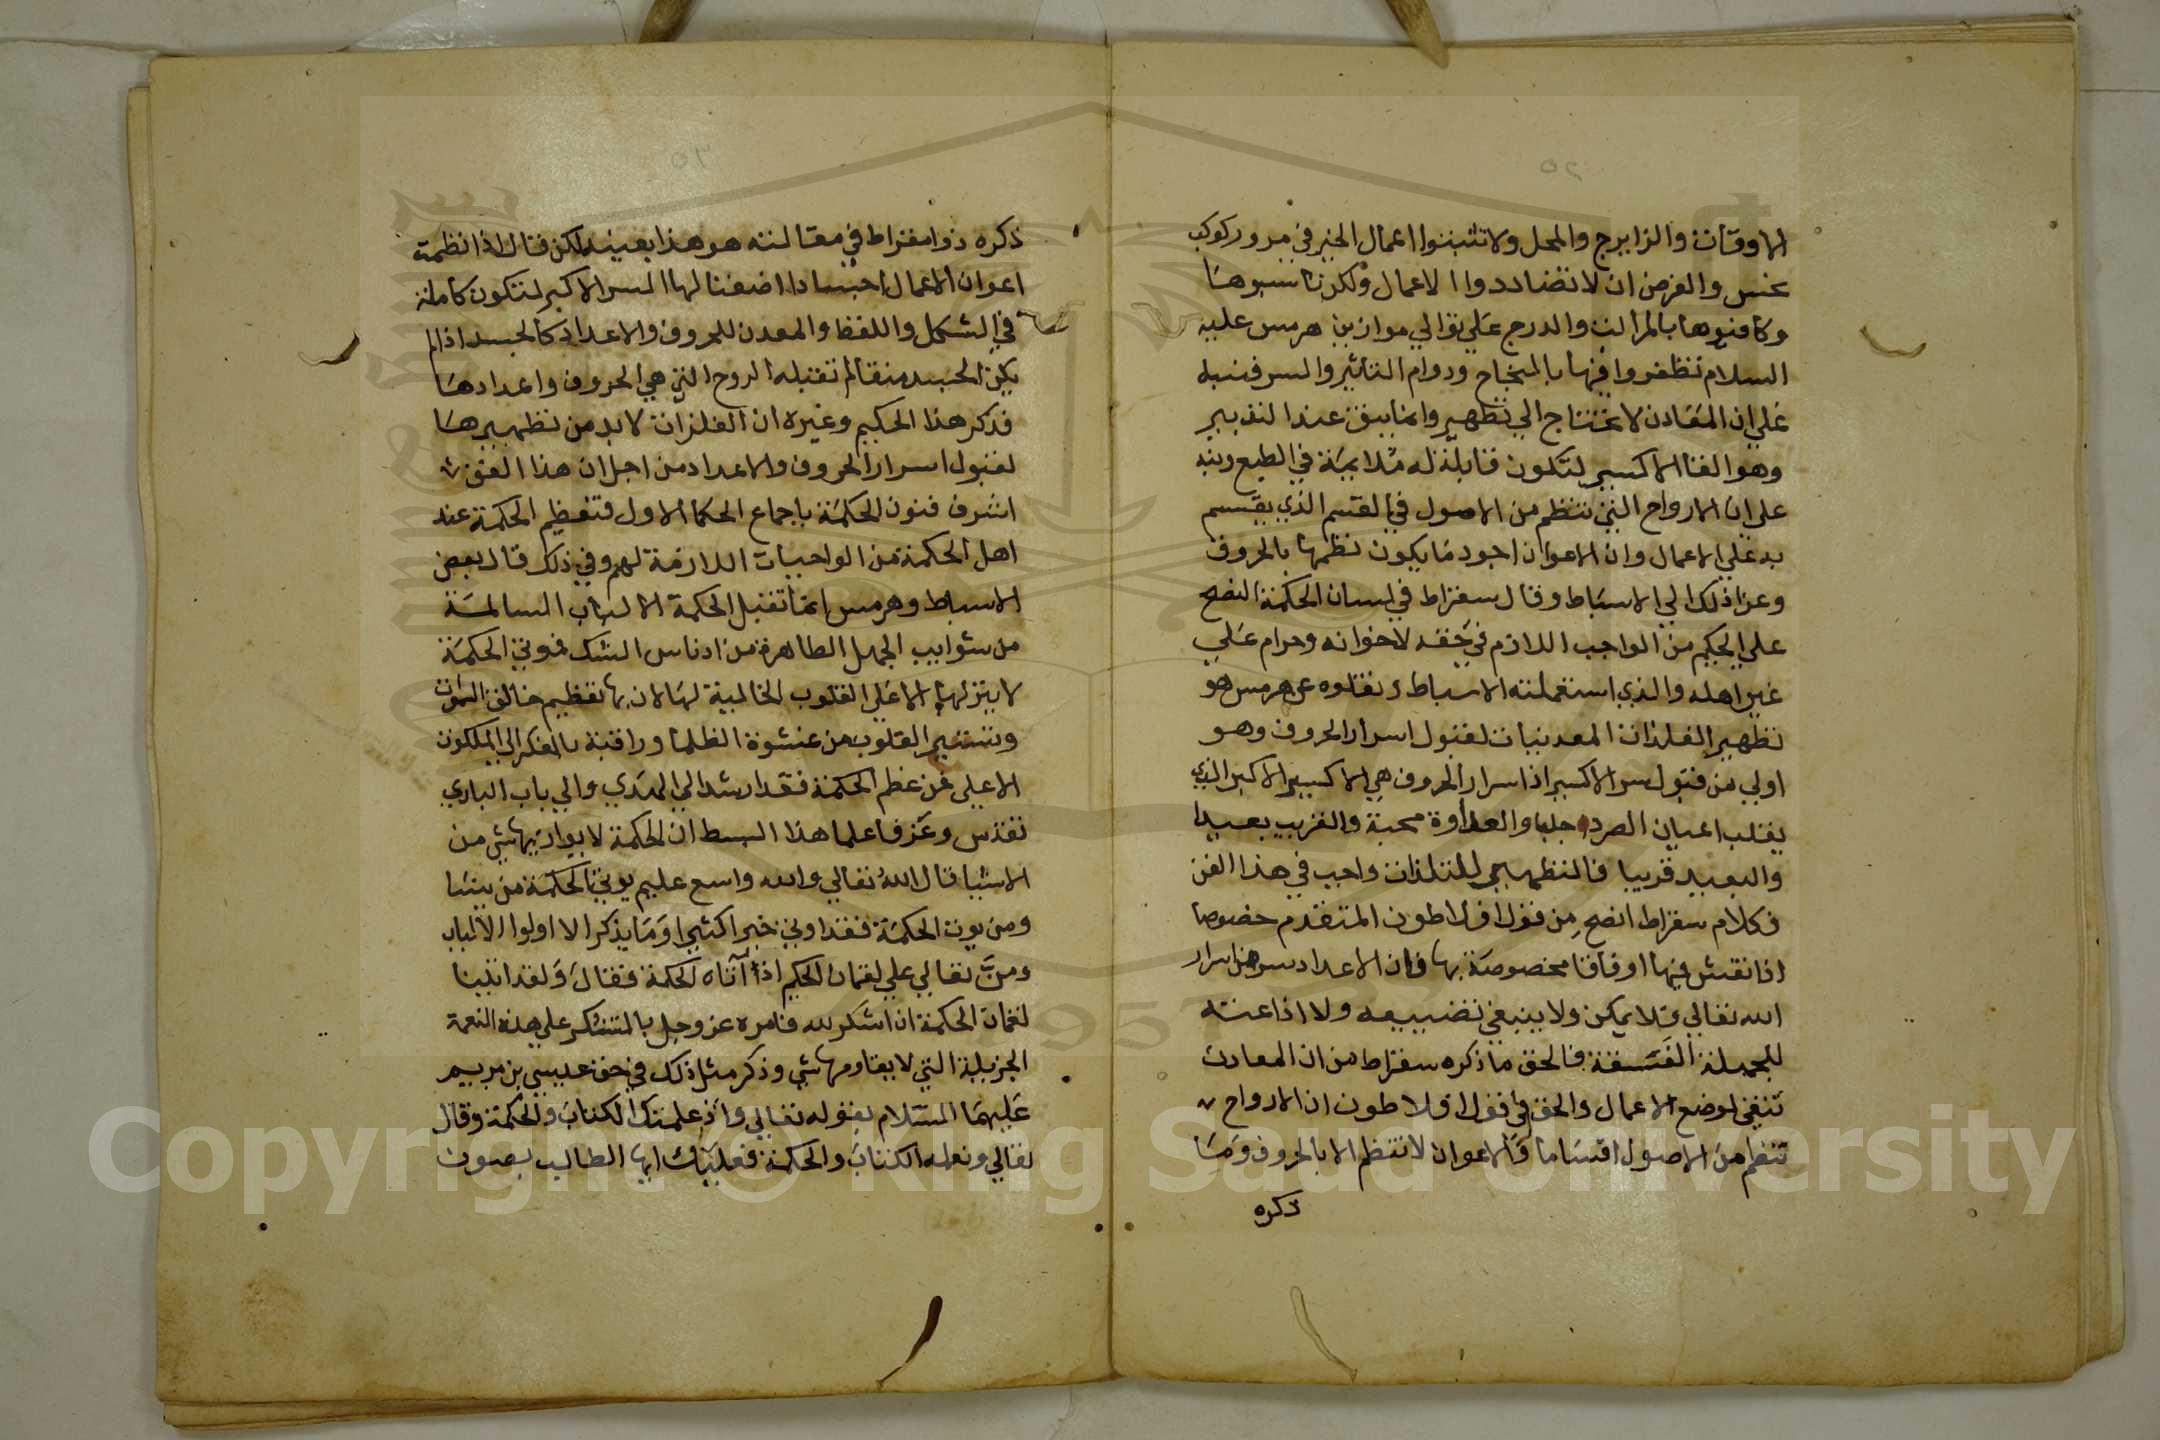 الاوقات والزايرج والمحل ولا تثبتوا اعمال الخير في مرور كوكب
نحس والغرض ان لا تضاددوا الاعمال ولكن ناسبوها
وكافئوها بالمرالت والدرج علي توالي موازين هرمس عليه
السلام تظفروا فيها بالنجاح ودوام التاثير والسر فنبه
علي ان المعادن لا تحتاج الي تطهير وانما يبقى عند التدبير
وهو القا الاكسير لتكون قابلة له ملايمة في الطبع ونبه
علي ان الارواح التي تنتظم من الاصول في القسم الذي يقسم
به علي الاعمال وان الاعوان اجود ما يكون نظمها بالحروف
وعزا ذلك الي الاسباط وقال سقراط في لسان الحكمة النصح
علي الحكيم من الواجب اللازم في حقه لاخوانه وحرام علي
غير اهله والذي استعملته الاسباط ونقلوه عن هرمس هو
تطهير الفلذات المعدنيات لقبول اسرار الحروف وهو
اولي من قبول سر الاكسير اذ اسرار الحروف هي الاكسير الاكبر الذي
يقلب اعيان الصرد جلبا والعداوة محبة والقريب بعيدا
والبعيد قريبا فالتطهير للفلذات واجب في هذا الفن
فكلام سقراط انصح من قول افلاطون المتقدم خصوصا
اذا نقش فيها اوفاقا مخصوصة بها فان الاعداد سر من اسرار
الله تعالي فلا يمكن ولا ينبغي تضييعه ولا اذاعته
للجهلة الفسقة فالحق ما ذكره سقراط من ان المعادن
تنقي لوضع الاعمال والحق في قول افلاطون ان الارواح
تنتظم من الاصول اقساما والاعوان لا تنتظم الا بالحروف وما
ذكره
ذكره ذوامقراط في مقالته هو هذا بعينه لكن قال اذا نظمت
اعوان الاعمال اجسادا اضفنا لها السر الاكبر لتكون كاملة
في الشكل واللفظ والمعدن للحروف والاعداد كالجسد اذا لم
يكن الجسد منقا لم تقبله الروح التي هي الحروف واعدادها
فذكر هذا الحكيم وغيره ان الفلزات لا بد من تطهيرها
لقبول اسرار الحروف والاعداد من اجل ان هذا الفن
اشرف فنون الحكمة باجماع الحكما الاول فتعظيم الحكمة عند
اهل الحكمة من الواجبات اللازمة لهم وفي ذلك قال بعض
الاسباط وهرمس انما تقبل الحكمة الالباب السالمة
من شوايب الجهل الطاهرة من ادناس الشك فموتي الحكمة
لا ينزلها الا علي القلوب الخالية لها لان بها تعظيم خالق السموات
وتستنير القلوب من عشوة الظلما وراقبة بالفكر الي الملكوت
الاعلي فمن عظم الحكمة فقد ارشد الي الهدي والي باب الباري
تقدس وعز فاعلما هذا البسط ان الحكمة لا يوازيها شي من
الاشيا قال الله تعالي والله واسع عليم يوتي الحكمة من يشا
ومن يوت الحكمة فقد اوتي خيرا كثيرا وما يذكر الا اولوا الالباب
ومن تعالي علي لقمان الحكيم اذ اتاه الحكمة فقال ولقد اتينا
لقمان الحكمة ان اشكر لله فامره عز وجل بالتشكر علي هذه النعمة
الجزيلة التي لا يقاومها شي وذكر مثل ذلك في حق عيسي بن مريم
عليهما السلام بقوله تعالي واذ علمتك الكتاب والحكمة وقال
تعالي ونعلمه الكتاب والحكمة فعليك ايها الطالب بصون
Copyright © King Saud University
1957